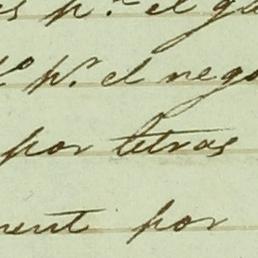 p.r el
p.r el nego
por letras
ment por